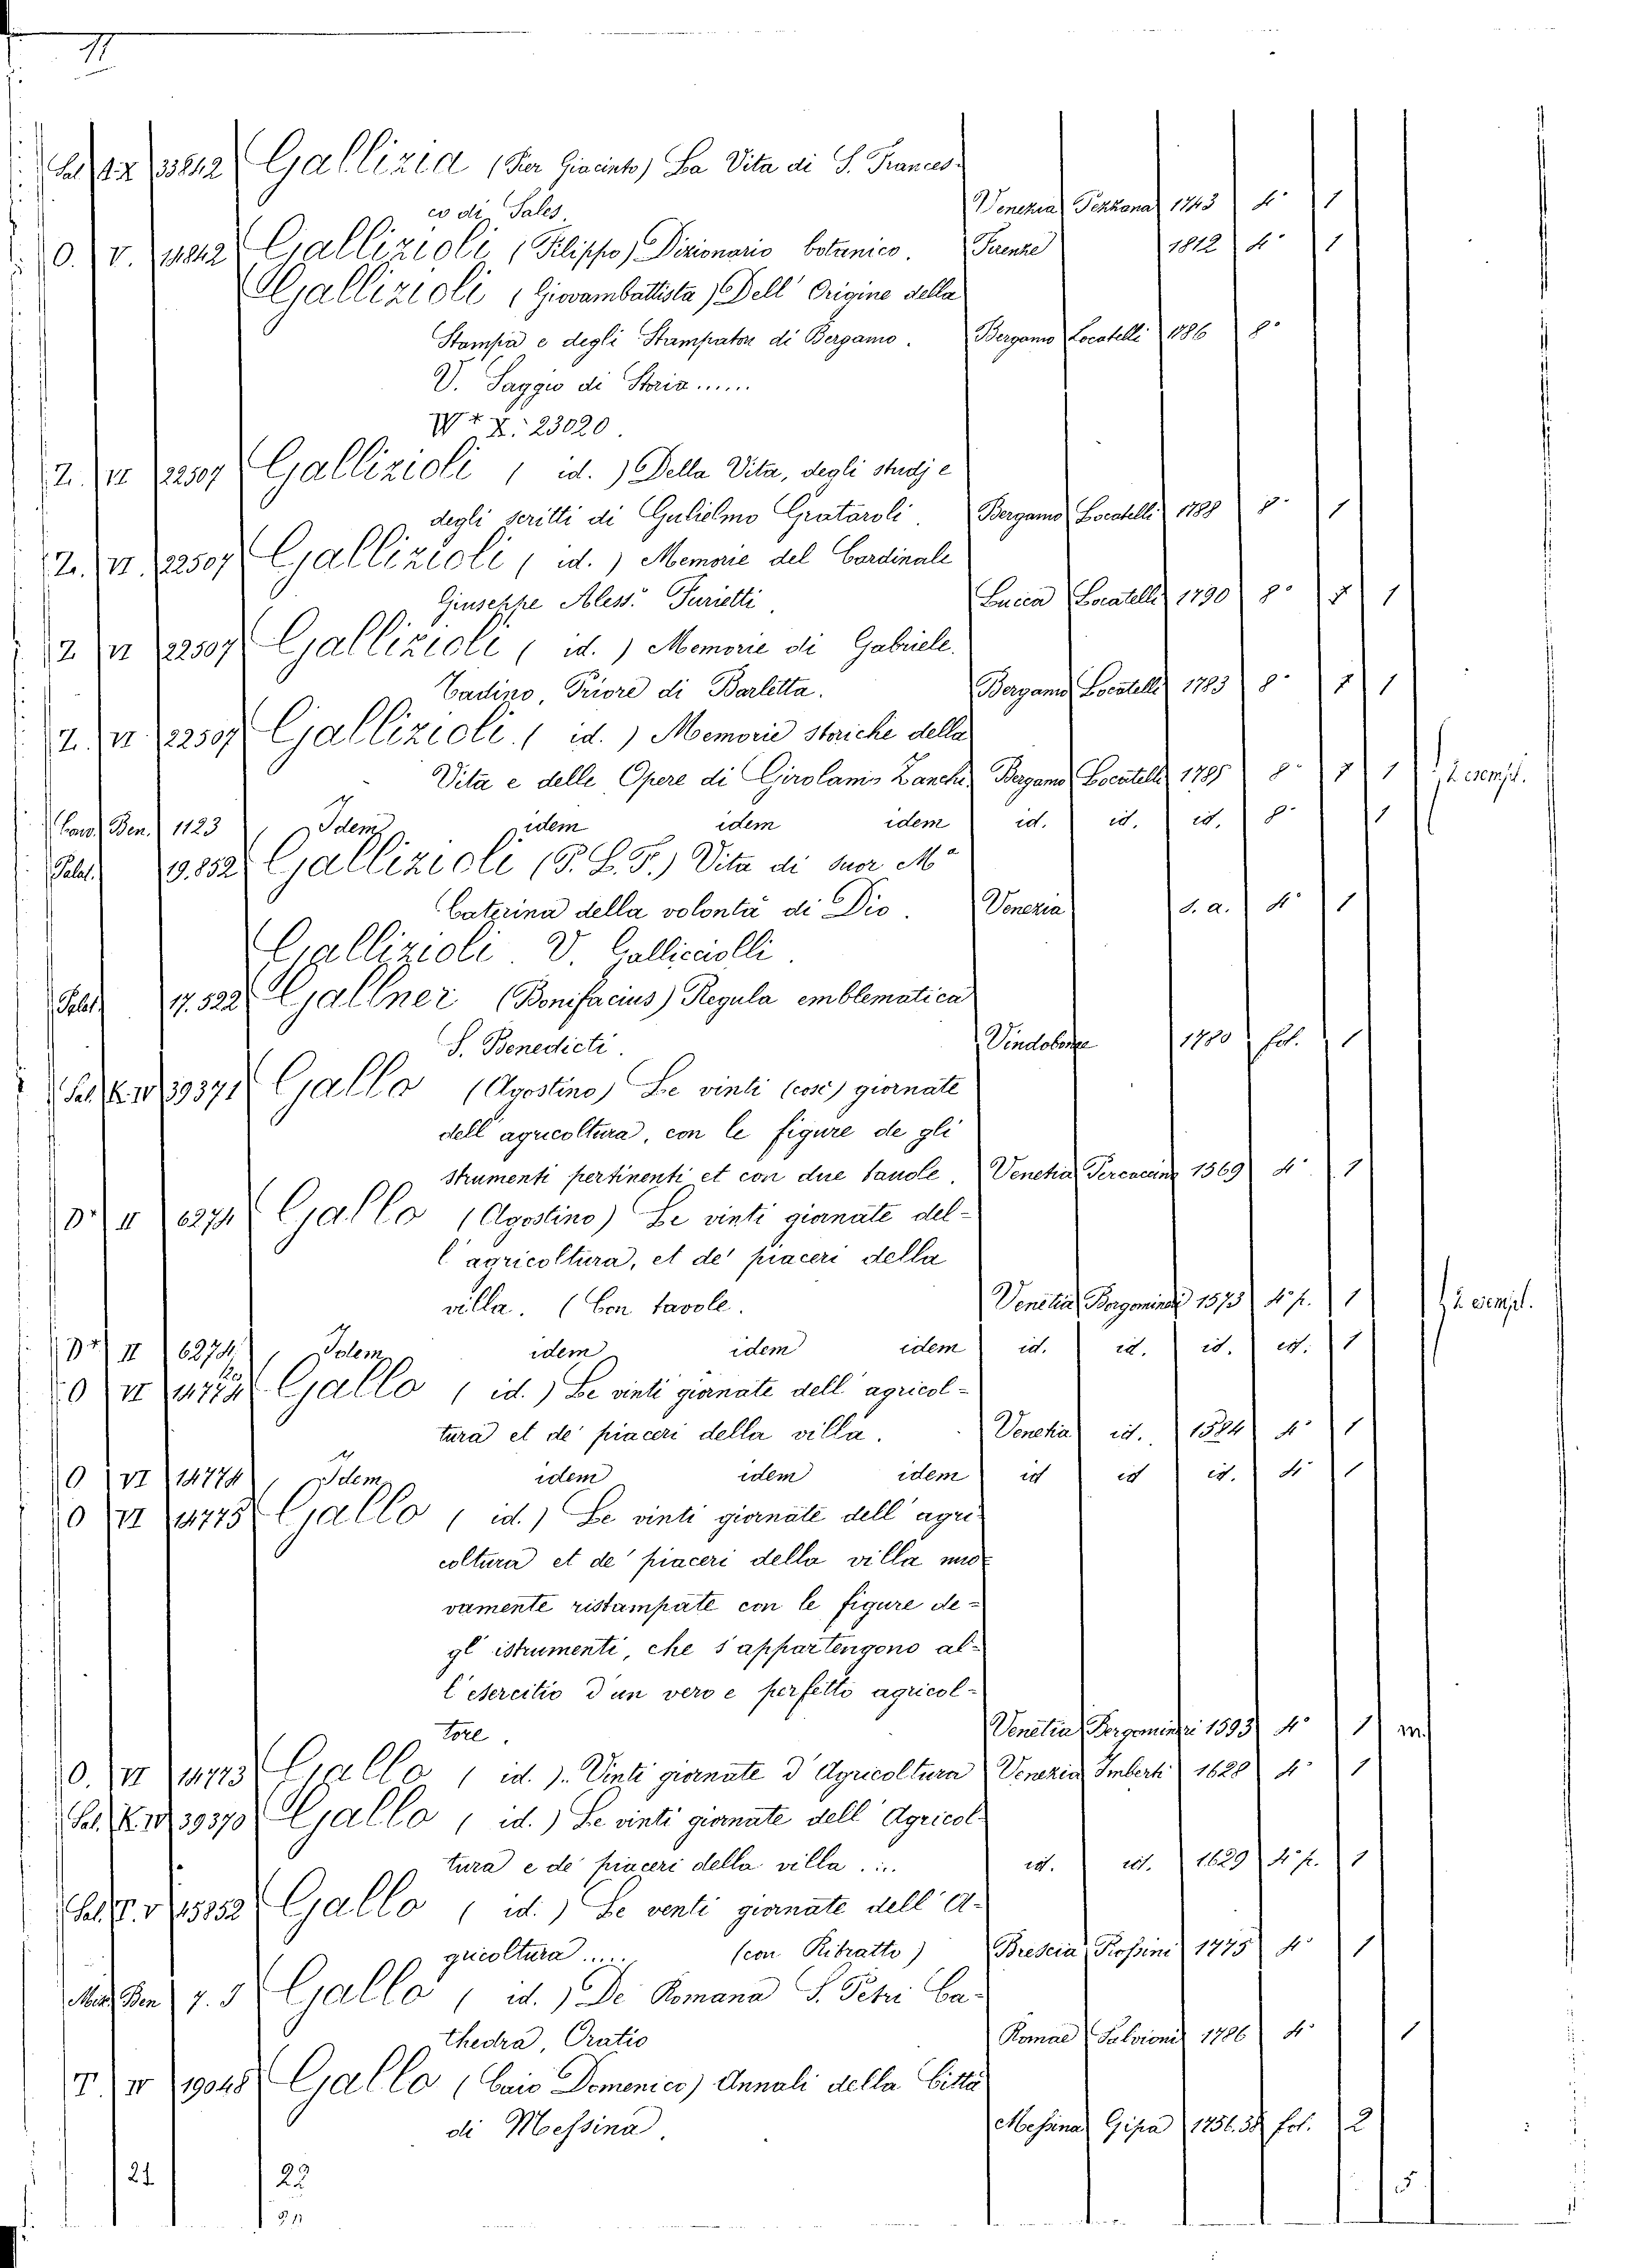 11
Sal 33842 Gallizia (Per Giacinto) La Vita di S. Frances-
co di Sales. Venezia Pezzana 1743 4° 1
O. V. 14842 Gallizioli (Filippo) Dizionario botanico. Firenze 1812 4° 1
Gallizioli (Giovambattista) Dell' Origine della
Stampa e degli Stampatori di Bergamo. Bergamo Locatelli 1786 8°
V. Saggio di Storia......
W* X. 23020.
Z. VI 22507 Gallizioli ( id. ) Della Vita, degli studj e
degli scritti di Gulielmo Grataroli. Bergamo Locatelli 1788 8° 1
Z. VI. 22507 Gallizioli ( id. ) Memorie del Cardinale
Giuseppe Aless.° Furietti. Lucca Locatelli 1790 8° 1
Z. VI 22507 Gallizioli ( id. ) Memorie di Gabriele
Tadino, Priore di Barletta. Bergamo Locatelli 1783 8° 1
Z. VI 22507 Gallizioli. ( id. ) Memorie storiche della
Vita e delle Opere di Girolamo Zanchi Bergamo Locatelli 1785 8° 1 2 esempl.
Cas. Ben. 1123 Idem idem idem idem id. id. id. 8° 1
Palat. 19.852 Gallizioli (P. L. F.) Vita di suor Mª
Caterina della volontà di Dio. Venezia s. a. 4° 1
Gallizioli. V. Galliciolli.
Palat. 17.522 Gallner (Bonifacius) Regula emblematica
S. Benedicti. Vindobonae 1780 fol. 1
Sal. K. IV 39371 Gallo (Agostino) Le vinti (cosi) giornate
dell' agricoltura, con le figure de gli
strumenti pertinenti et con due tauole. Venetia Percaccino 1569 4° 1
D* II 6274 Gallo (Agostino) Le vinti giornate del-
l'agricoltura, et de' piaceri della
villa. (Con tavole. Venetia Borgominerj 1573 4° p. 1 2 esempl.
D* II 6274 Idem idem idem idem id. id. id. id. 1
O VI 14774 Gallo ( id. ) Le vinti giornate dell' agricol-
tura et de' piaceri della villa. Venetia id. 1584 4° 1
O VI 14774 Idem idem idem idem id id id. 4° 1
O VI 14775 Gallo ( id. ) Le vinti giornate dell' agri-
coltura et de' piaceri della villa nuo-
vamente ristampate con le figure de-
gl' istrumenti, che s'appartengono al-
l'esercitio d'un vero e perfetto agricol-
tore. Venetia Borgominieri 1593 4° 1 m.
O. VI 14773 Gallo ( id. ). Vinti giornate d'Agricoltura Venezia Imberti 1628 4° 1
Sal. K. IV 39370 Gallo ( id. ) Le vinti giornate dell' Agricol-
tura e de' piaceri della villa.... id. id. 1629 4° p. 1
Sal. P. V 45352 Gallo ( id. ) Le venti giornate dell' A-
gricoltura..... (con Ritratto) Brescia Rossini 1775 4° 1
Mis. Ben 7. 3 Gallo ( id. ) De Romana S. Petri Ca-
thedra, Oratio Romae Salvioni 1786 4° 1
T. IV 19048 Gallo (Caio Domenico) Annali della Città
di Messina. Messina Gipa 1756.58 fol. 2
21 22 5